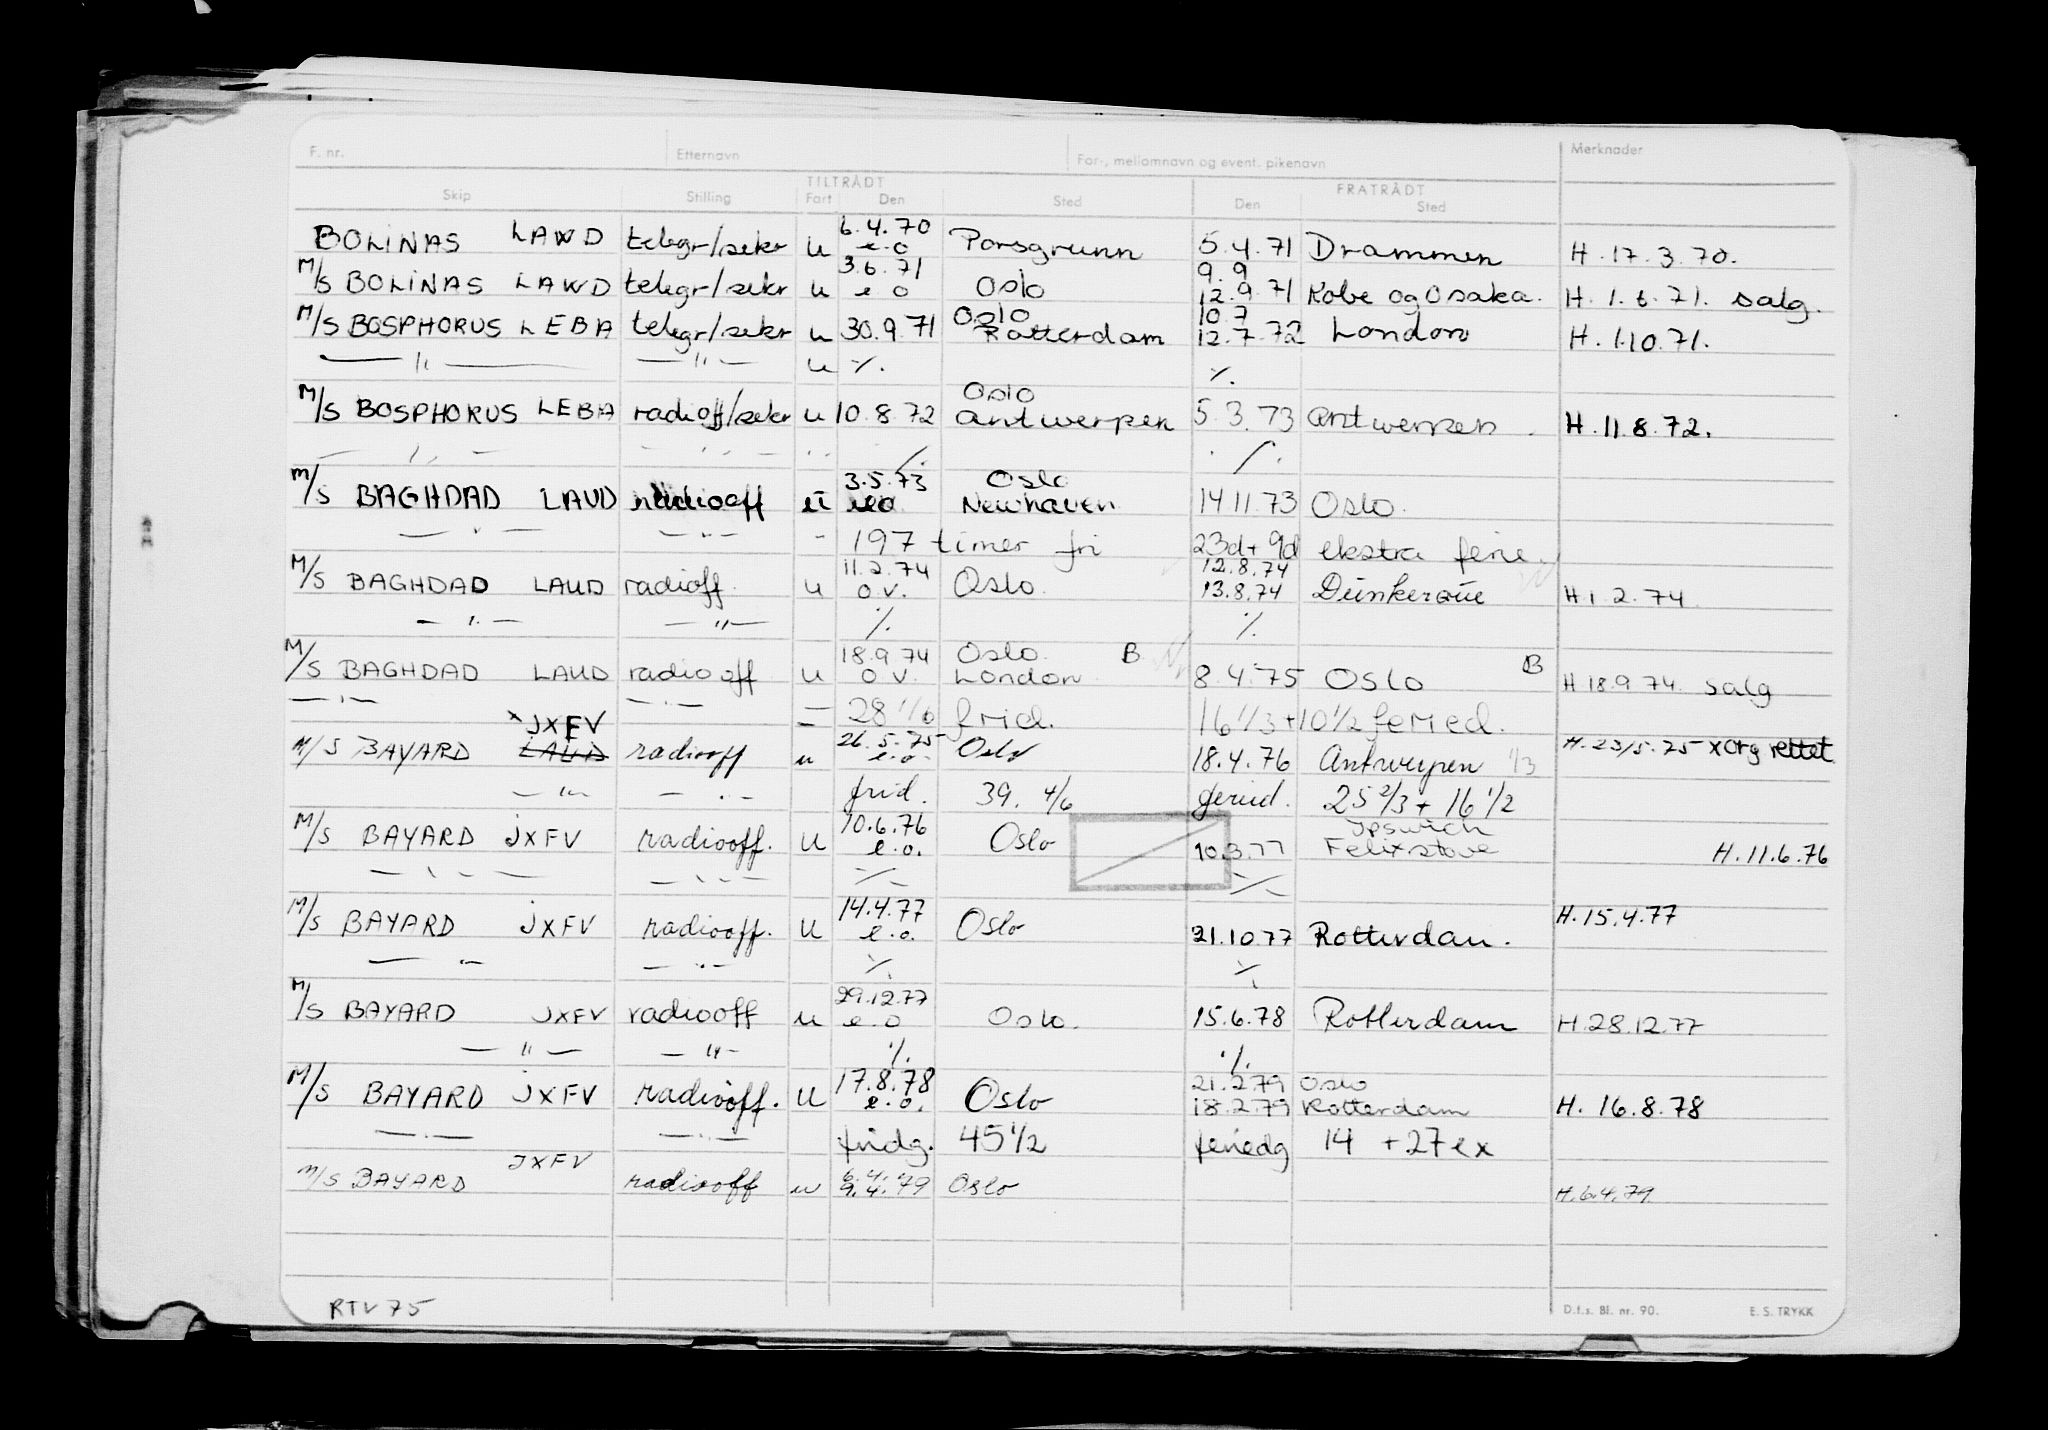 F. nr. Etternavn For-, mellomnavn og event. pikenavn Merknader
TILTRÅDT FRATRÅDT
Skip Stilling Fart Den Sted Den Sted
6.4.70
BOLINAS LAWD telegr/sekr u e.o Porsgrunn 5.4.71 Drammen H.17.3.70.
3.6.71 9.9
M/S BOLINAS LAWD telegr/sekr u e o Oslo 12.9.71 Kobe og Osaka. H.1.6.71. salg.
Oslo 10.7
M/S BOSPHORUS LEBA telegr/sekr u 30.9.71 Rotterdam 12.7.72 London H.1.10.71.
— " — — " — u %. %.
Oslo
M/S BOSPHORUS LEBA radioff/sekr u 10.8.72 Antwerpen 5.3.73 Antwerpen. H.11.8.72.
— " — — " — " %. %.
3.5.73 Oslo
M/S BAGHDAD LAUD radiooff u Newhaven 14 11.73 Oslo.
— " — — " — " 197 timer fri 23d+ 9d ekstra ferie.
11.2.74 12.8.74
M/S BAGHDAD LAUD radioff. u o v. Oslo. 13.8.74 Dünkerque H 1.2.74
— " — — " — %. %.
18.9.74 Oslo. B B
M/S BAGHDAD LAUD radiooff u o v. London 8.4.75 Oslo H 18.9.74. salg
— " — — " — — 28 1/6 frid. 16 1/3+10 1/2 feried.
x JXFV 26.5.75
M/S BAYARD LAUD radiooff u e.o. Oslo 18.4.76 Antwerpen 1/3 H.23/5.75 x Org rettet
— " — — " — frid. 39. 4/6 feried. 25 2/3 + 16 1/2
10.6.76 Ipswich
M/S BAYARD JXFV radiooff. u e.o. Oslo 10.3.77 Felixstowe H.11.6.76
— " — — " — %. %.
14.4.77 H.15.4.77
M/S BAYARD JXFV radiooff. u e.o. Oslo 21.10.77 Rotterdam.
— " — — " — %. %.
29.12.77
M/S BAYARD JXFV radiooff u e.o Oslo. 15.6.78 Rotterdam H.28.12.77
— " — — " — %. %.
17.8.78 21.2.79 Oslo
M/S BAYARD JXFV radiooff. u e.o. Oslo 18.2.79 Rotterdam H. 16.8.78
— " — — " — fridg. 45 1/2 feriedg 14 + 27 ex
JXFV 6.4.
M/S BAYARD radiooff u 9.4.79 Oslo H.6.4.79.
RTV 75 D.f.s. Bl. nr. 90. E. S. TRYKK